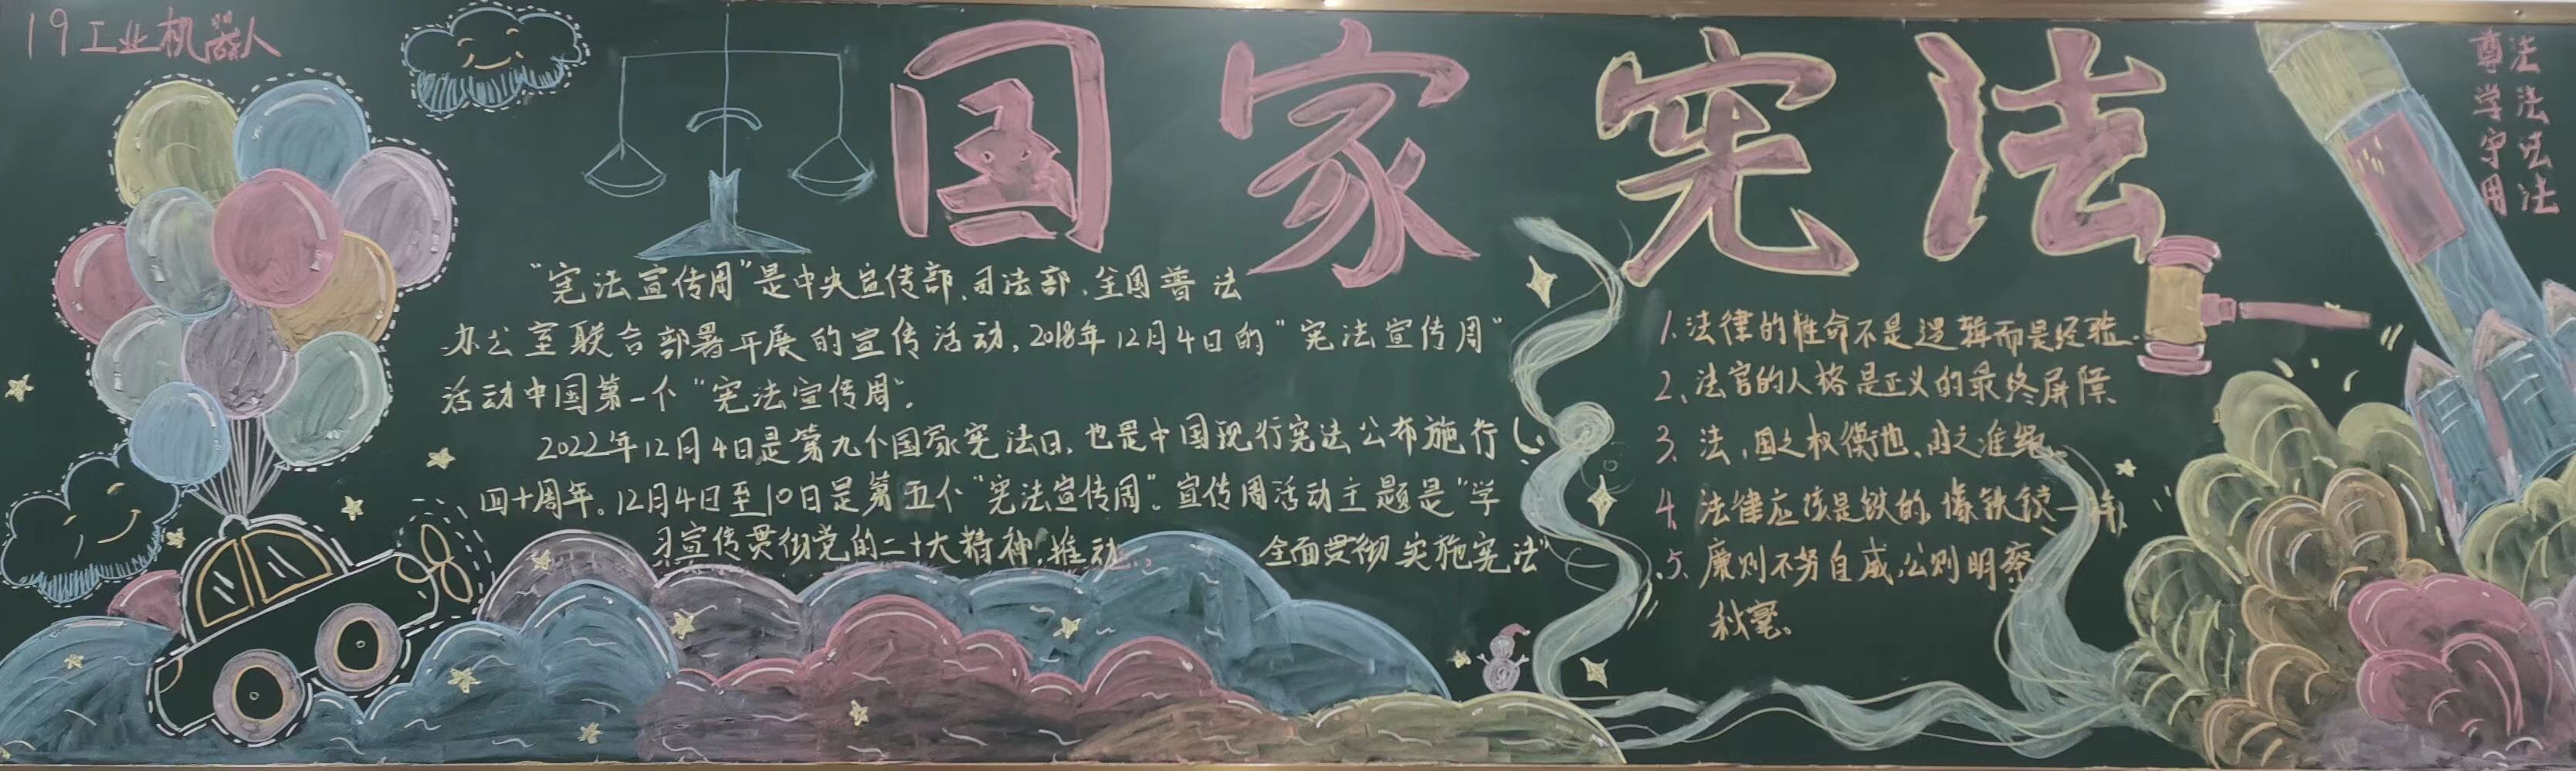 19工业机器人
国家宪法
尊法
学法
守法
用法
“宪法宣传周”是中央宣传部、司法部、全国普法
办公室联合部署开展的宣传活动，2018年12月4日的“宪法宣传周”
活动中国第一个“宪法宣传周”。
2022年12月4日是第九个国家宪法日，也是中国现行宪法公布施行
四十周年。12月4日至10日是第五个“宪法宣传周”。宣传周活动主题是“学
习宣传贯彻党的二十大精神，推动 全面贯彻实施宪法”
1、法律的性命不是逻辑而是经验.
2、法官的人格是正义的最终屏障
3、法，国之权衡也，时之准绳。
4、法律应该是铁的，像铁锁一样，
5、廉则不劳自威，公则明察
秋毫。